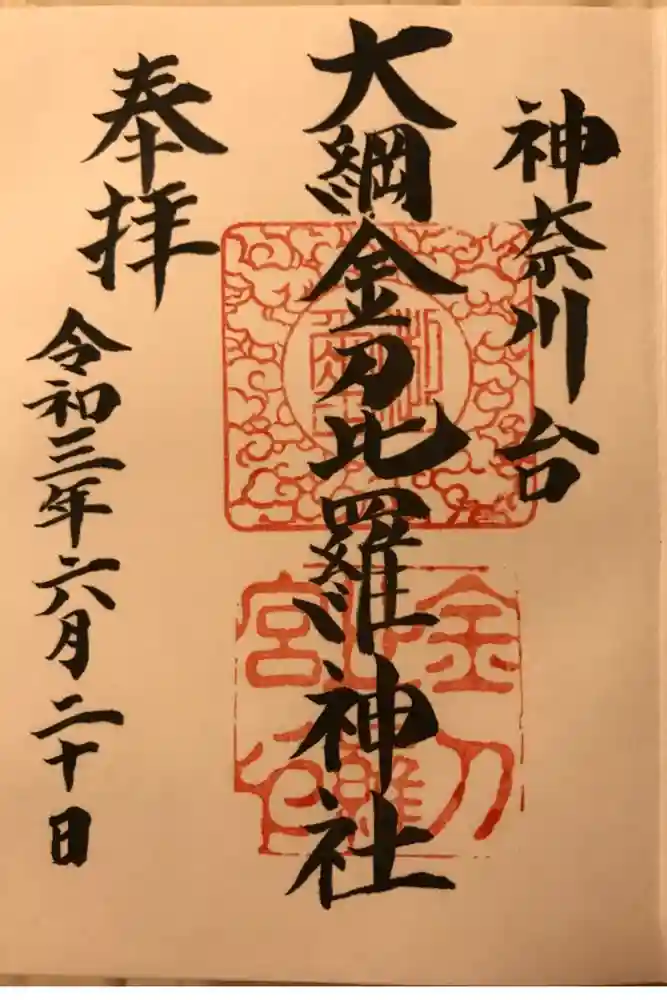 神奈川台
大綱金刀比羅神社
奉拝
令和三年六月二十日
金刀
比羅
宮